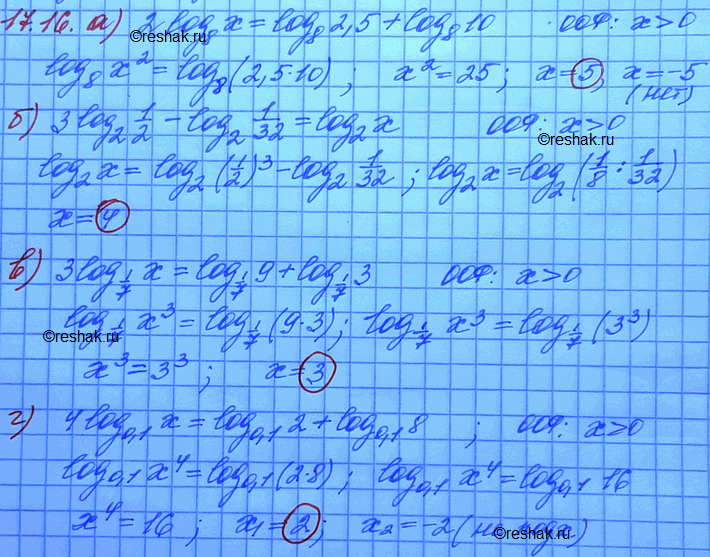 17.16. а) 2 log₈ x = log₈ 2,5 + log₈ 10 ООФ: x > 0
©reshak.ru ©reshak.ru
log₈ x² = log₈ (2,5·10) ; x² = 25 ; x = 5, x = -5
(нет)
б) 3 log₂ 1/2 - log₂ 1/32 = log₂ x ООФ: x > 0
©reshak.ru
log₂ x = log₂ (1/2)³ - log₂ 1/32 ; log₂ x = log₂ (1/8 : 1/32)
x = 4
в) 3 log_1/7 x = log_1/7 9 + log_1/7 3 ООФ: x > 0
log_1/7 x³ = log_1/7 (9·3) ; log_1/7 x³ = log_1/7 (3³)
©reshak.ru
x³ = 3³ ; x = 3
г) 4 log₀,₁ x = log₀,₁ 2 + log₀,₁ 8 ; ООФ: x > 0
log₀,₁ x⁴ = log₀,₁ (2·8) ; log₀,₁ x⁴ = log₀,₁ 16
x⁴ = 16 ; x₁ = 2 ; x₂ = -2 (не подх)
©reshak.ru